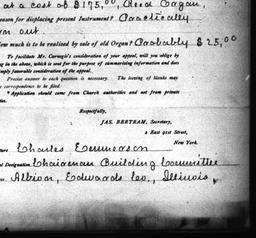 at a cost of $175,00 Reed Organ,
eason for displacing present Instrument? Practically
out.
ow much is to be realized by sale of old Organ? Probably $25,00
To facilitate Mr. Carnegie's consideration of your appeal, will you oblige by
ng in the above, which is sent for the purpose of summarizing information and does
imply favorable consideration of the appeal.
Precise answer to each question is necessary. The issuing of blanks may
correspondence to be filed.
* Application should come from Church authorities and not from private
Respectfully,
JAS. BERTRAM, Secretary,
2 East 91st Street,
New York.
Charles Emmerson
al Designation Chairman Building Committee
Albion, Edwards Co., Illinois,